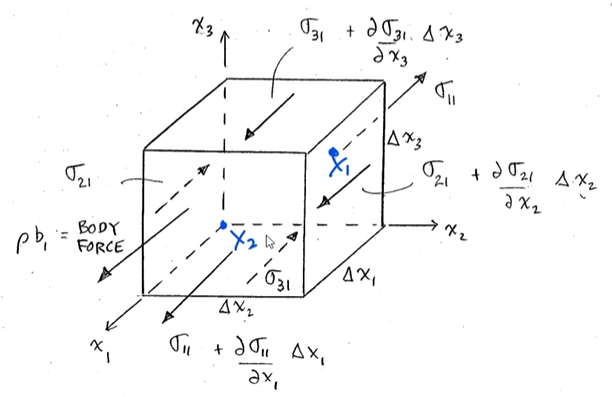 x₃
σ₃₁ + ∂σ₃₁/∂x₃ Δx₃
σ₁₁
Δx₃
X₁
σ₂₁
σ₂₁ + ∂σ₂₁/∂x₂ Δx₂
ρb₁ = BODY
FORCE
X₂
x₂
σ₃₁
Δx₁
Δx₂
x₁
σ₁₁ + ∂σ₁₁/∂x₁ Δx₁